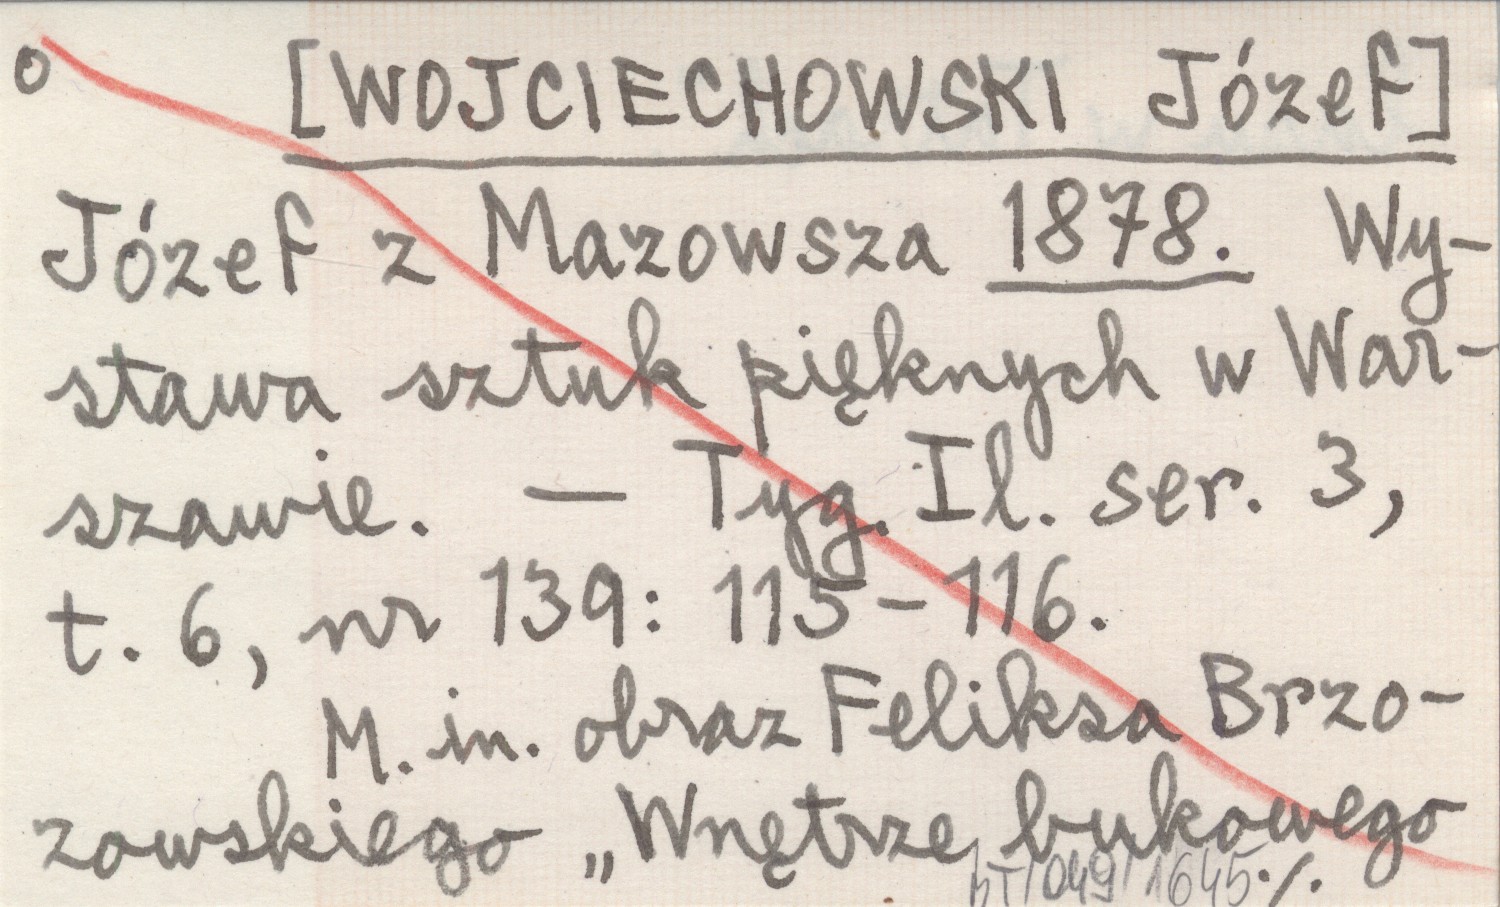 o [WOJCIECHOWSKI Józef]
Józef z Mazowsza 1878. Wy-
stawa sztuk pięknych w War-
szawie. — Tyg. Il. ser. 3,
t. 6, nr 139: 115-116.
M. in. obraz Feliksa Brzo-
zowskiego „Wnętrze bukowego
bT/049/1645 ./.